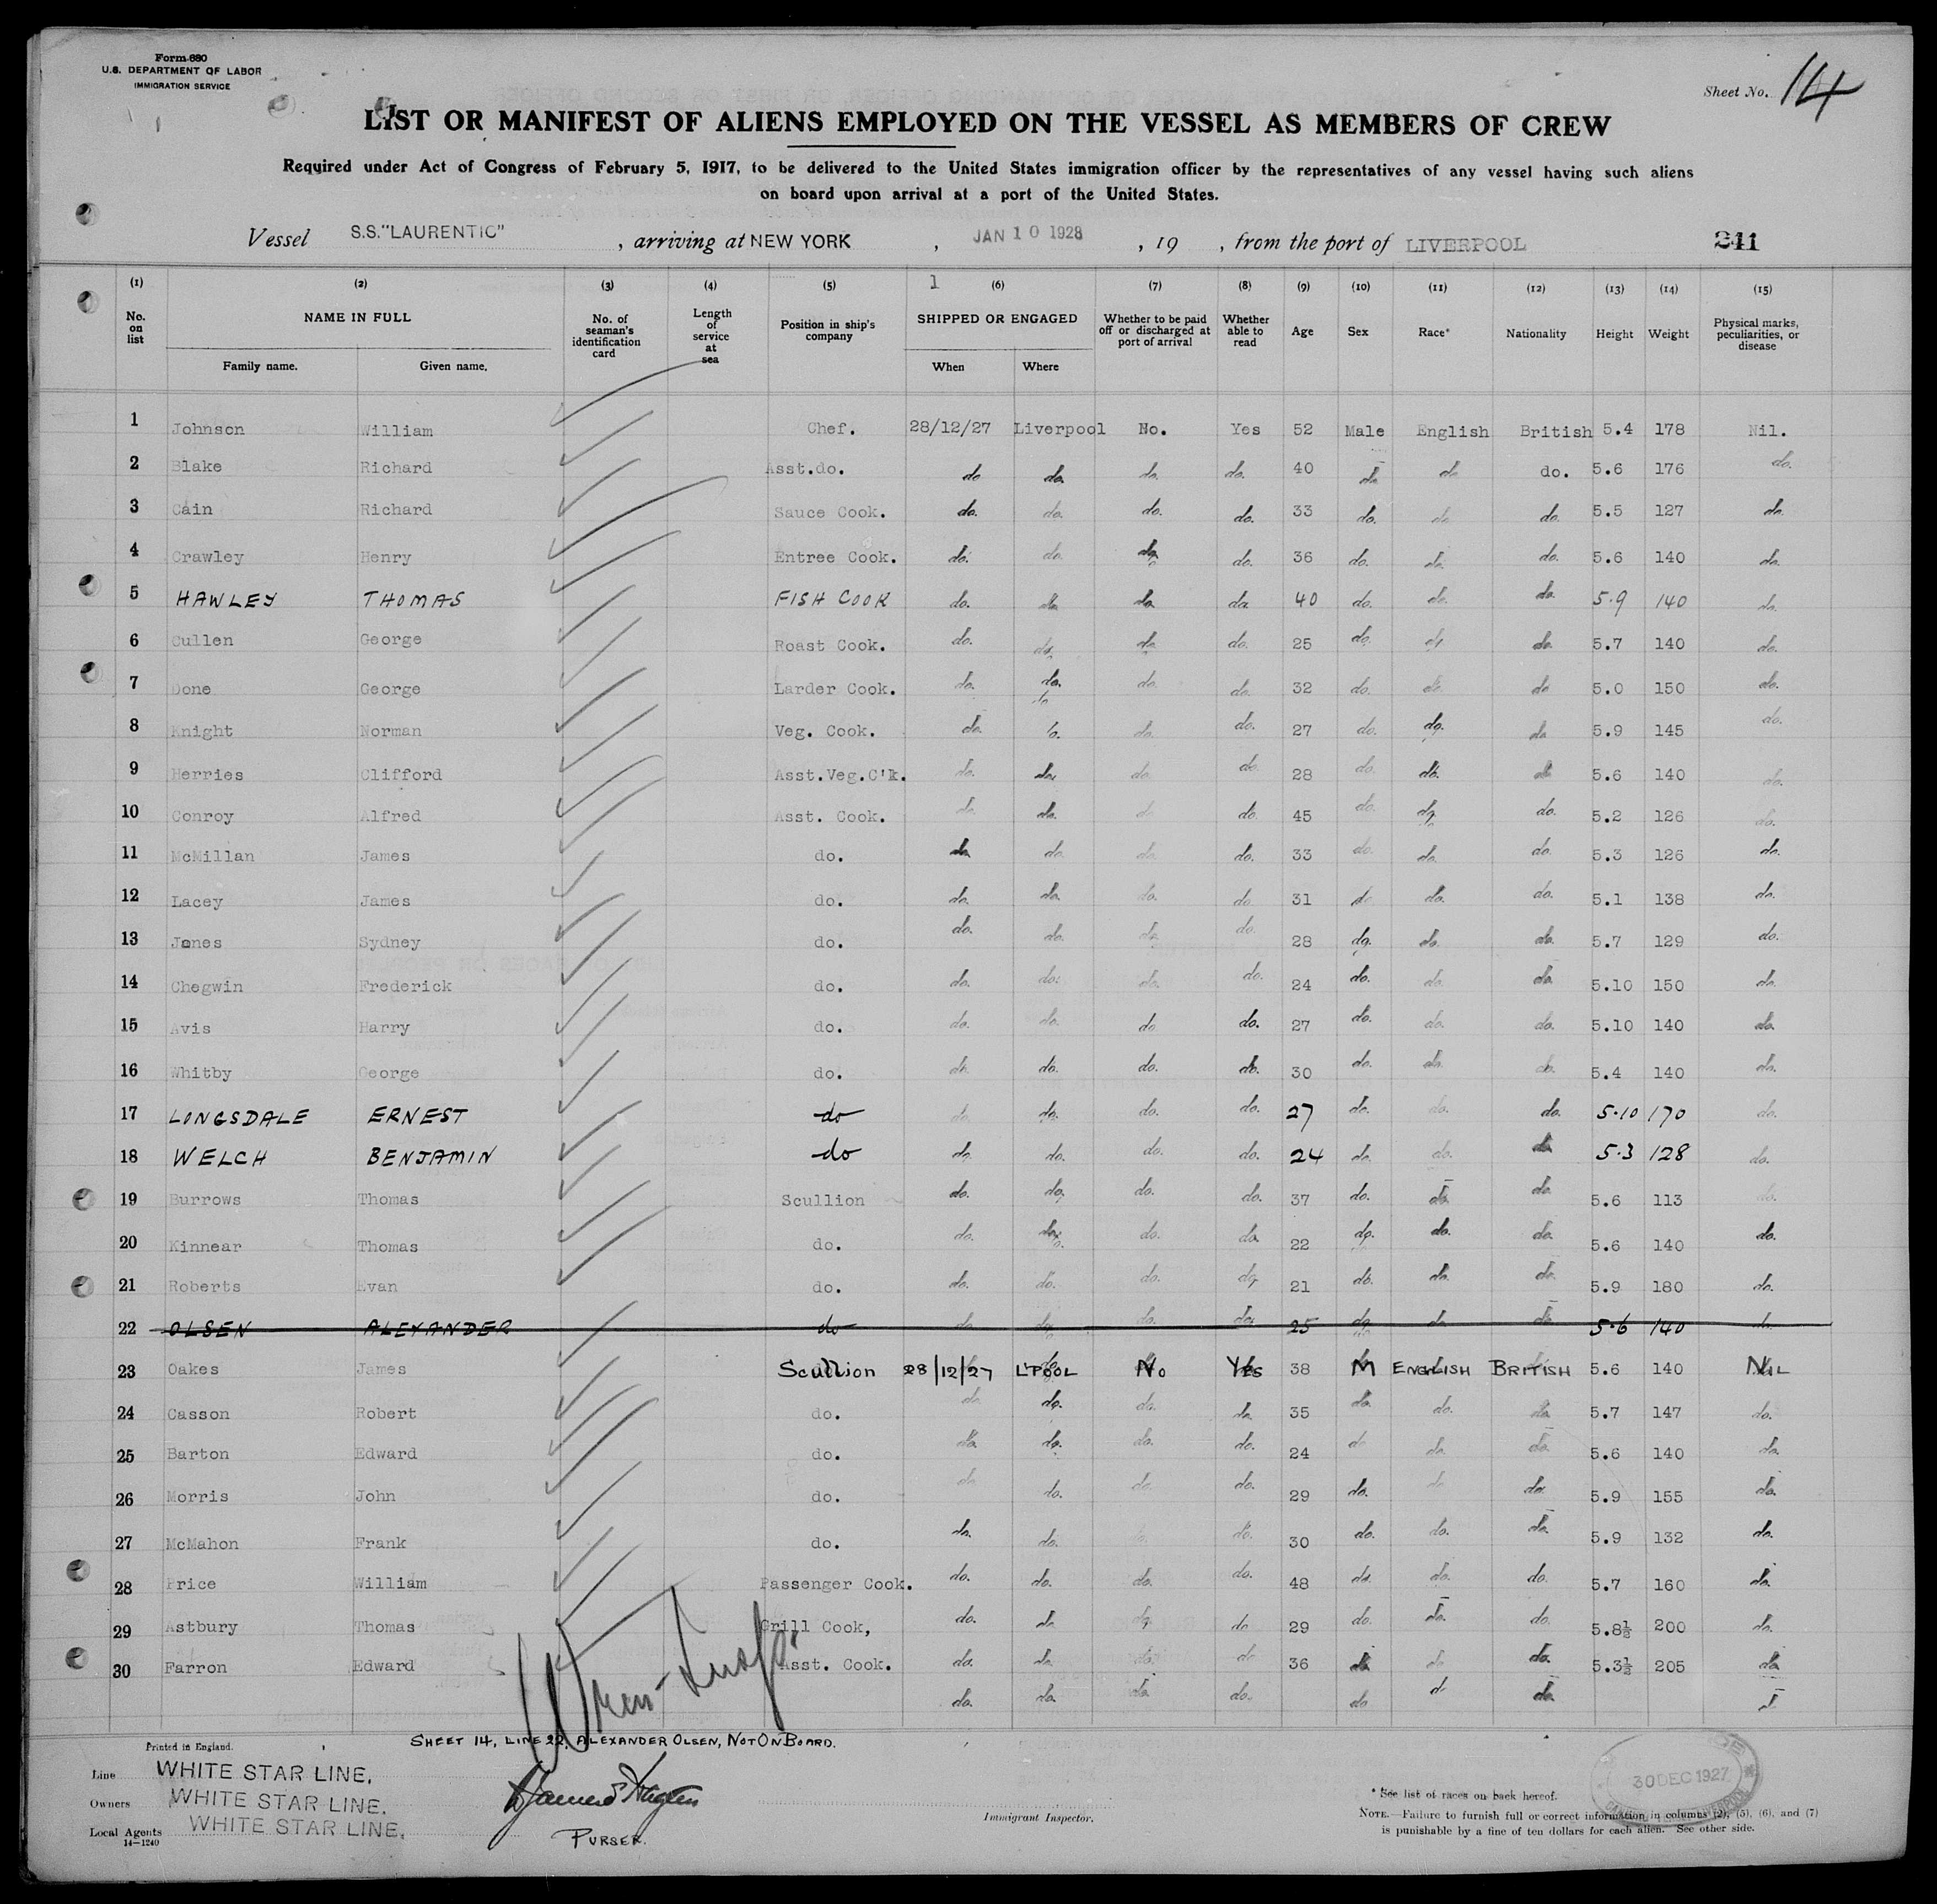 Form 680
U.S. DEPARTMENT OF LABOR
IMMIGRATION SERVICE
Sheet No. 14
LIST OR MANIFEST OF ALIENS EMPLOYED ON THE VESSEL AS MEMBERS OF CREW
Required under Act of Congress of February 5, 1917, to be delivered to the United States immigration officer by the representatives of any vessel having such aliens
on board upon arrival at a port of the United States.
Vessel S.S."LAURENTIC" , arriving at NEW YORK , JAN 10 1928 , 19 , from the port of LIVERPOOL 241
(1) (2) (3) (4) (5) 1 (6) (7) (8) (9) (10) (11) (12) (13) (14) (15)
No. on list NAME IN FULL Family name. Given name. No. of seaman's identification card Length of service at sea Position in ship's company SHIPPED OR ENGAGED When Where Whether to be paid off or discharged at port of arrival Whether able to read Age Sex Race* Nationality Height Weight Physical marks, peculiarities, or disease
1 Johnson William Chef. 28/12/27 Liverpool No. Yes 52 Male English British 5.4 178 Nil.
2 Blake Richard Asst.do. do do. do. do. 40 do. do do. 5.6 176 do.
3 Cain Richard Sauce Cook. do. do. do. do. 33 do. do. do. 5.5 127 do.
4 Crawley Henry Entree Cook. do. do. do. do. 36 do. do. do. 5.6 140 do.
5 HAWLEY THOMAS FISH COOK do. do. do. do 40 do. do. do. 5.9 140 do.
6 Cullen George Roast Cook. do. do. do. do. 25 do. do. do. 5.7 140 do.
7 Done George Larder Cook. do. do. do. do. 32 do. do. do 5.0 150 do.
8 Knight Norman Veg. Cook. do. do. do. do. 27 do. do. do 5.9 145 do.
9 Herries Clifford Asst.Veg.C'k. do. do. do. do. 28 do. do. do 5.6 140 do.
10 Conroy Alfred Asst. Cook. do. do. do do. 45 do. do. do. 5.2 126 do.
11 McMillan James do. do. do. do. do. 33 do. do. do. 5.3 126 do.
12 Lacey James do. do. do. do. do 31 do do. do. 5.1 138 do.
13 Jones Sydney do. do. do. do. do. 28 do. do. do. 5.7 129 do.
14 Chegwin Frederick do. do. do. do. do. 24 do. do. do. 5.10 150 do.
15 Avis Harry do. do. do. do do. 27 do. do. do. 5.10 140 do.
16 Whitby George do. do. do. do. do. 30 do. do. do. 5.4 140 do.
17 LONGSDALE ERNEST do do. do. do. do. 27 do. do. do. 5.10 170 do.
18 WELCH BENJAMIN do do. do. do. do. 24 do. do. do 5.3 128 do.
19 Burrows Thomas Scullion do. do. do. do. 37 do. do. do. 5.6 113 do.
20 Kinnear Thomas do. do. do. do. do. 22 do. do. do. 5.6 140 do.
21 Roberts Evan do. do. do. do. do 21 do. do. do. 5.9 180 do.
22 OLSEN ALEXANDER do do. do. do. do. 25 do. do. do. 5.6 140 do.
23 Oakes James Scullion 28/12/27 L'POOL No Yes 38 M ENGLISH BRITISH 5.6 140 NIL
24 Casson Robert do. do. do. do. do. 35 do. do. do. 5.7 147 do.
25 Barton Edward do. do. do. do. do. 24 do do. do. 5.6 140 do.
26 Morris John do. do. do. do. do. 29 do. do do. 5.9 155 do.
27 McMahon Frank do. do. do. do. do. 30 do. do. do. 5.9 132 do.
28 Price William Passenger Cook. do. do. do. do. 48 do. do. do. 5.7 160 do.
29 Astbury Thomas Grill Cook, do. do. do. do 29 do. do. do. 5.8½ 200 do.
30 Farron Edward Asst. Cook. do. do. do. do 36 do do do. 5.3½ 205 do
do. do. do. do. do do do.
SHEET 14, LINE 22, ALEXANDER OLSEN, NOT ON BOARD.
Printed in England.
Line WHITE STAR LINE.
Owners WHITE STAR LINE.
Local Agents WHITE STAR LINE.
14—1240
PURSER.
Immigrant Inspector.
30 DEC 1927
* See list of races on back hereof.
NOTE.—Failure to furnish full or correct information in columns (2), (5), (6), and (7)
is punishable by a fine of ten dollars for each alien. See other side.